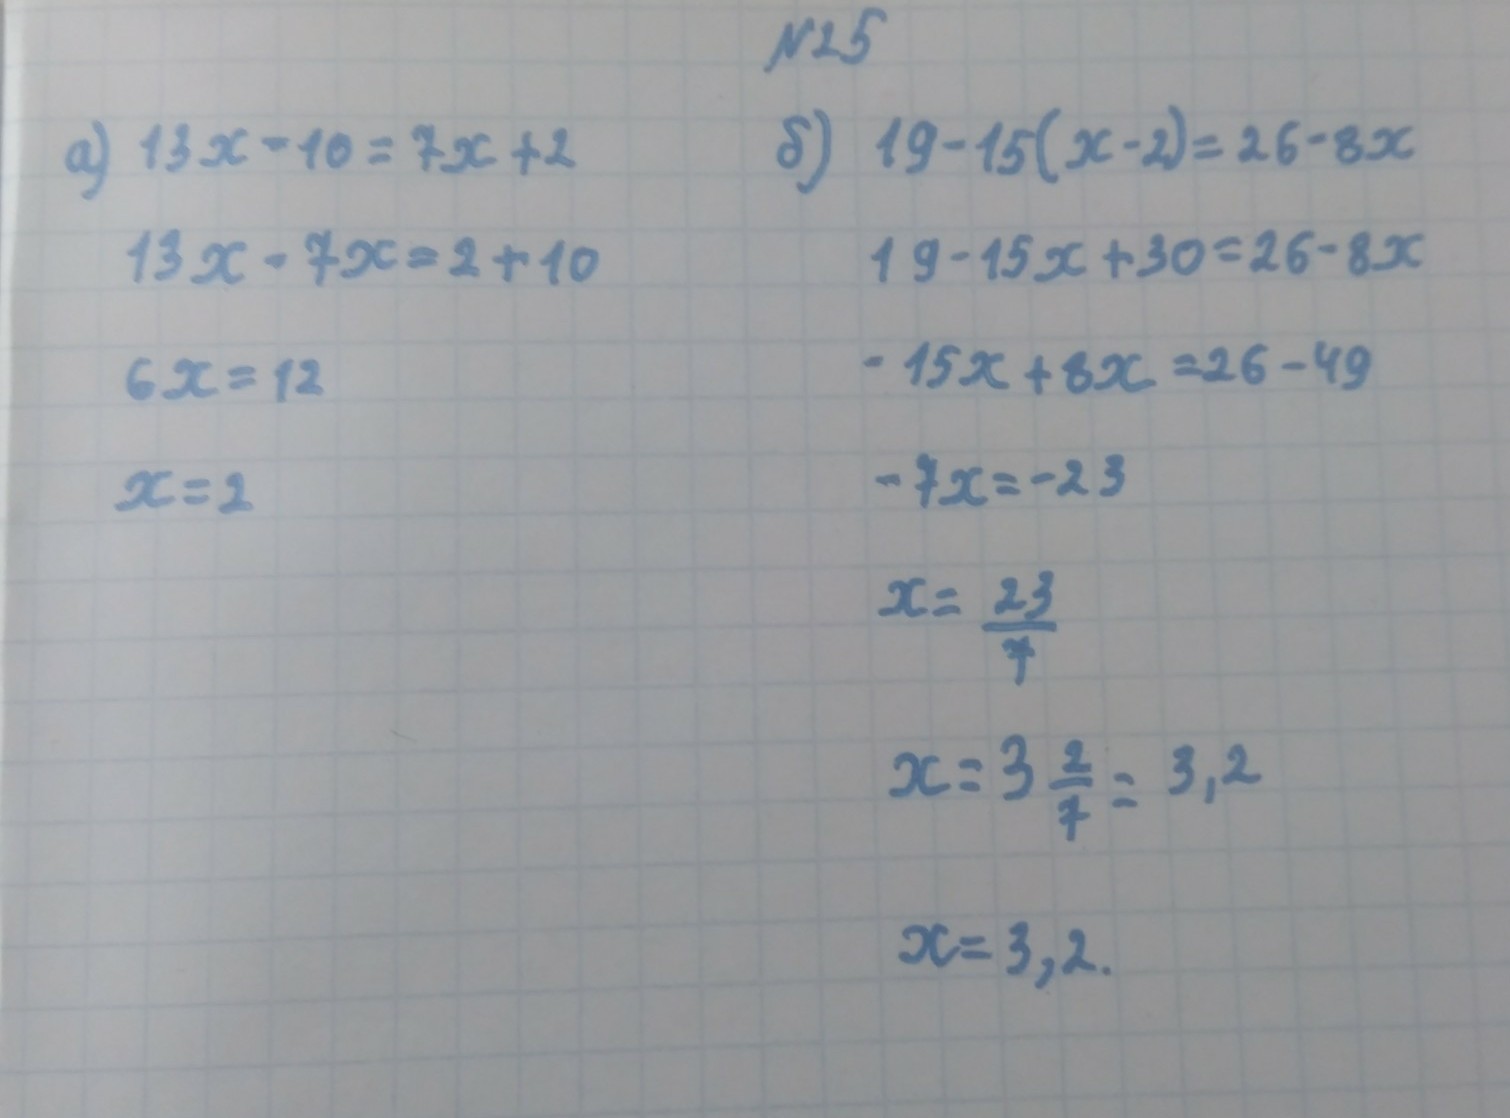 №25
а) 13x - 10 = 7x + 2
13x - 7x = 2 + 10
6x = 12
x = 2
б) 19 - 15(x - 2) = 26 - 8x
19 - 15x + 30 = 26 - 8x
- 15x + 8x = 26 - 49
- 7x = - 23
x = 23/7
x = 3 2/7 = 3,2
x = 3,2.